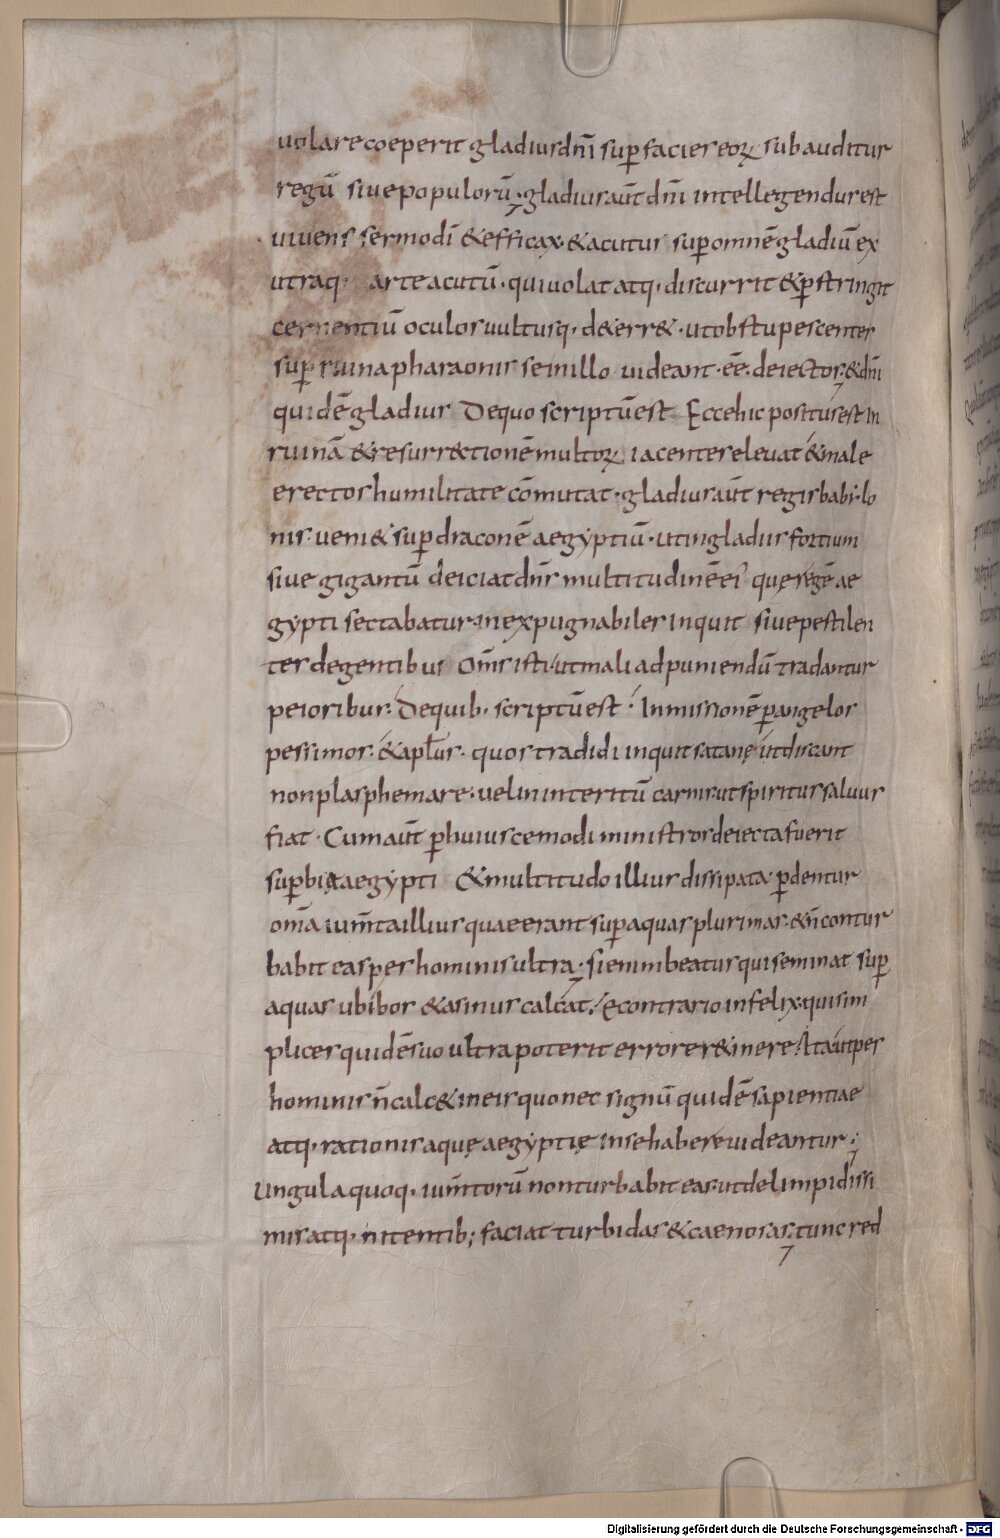 uolare coeperit gladius dn̄i sup̄ facies eoꝝ subauditur
regū siue populorū; gladius aūt dn̄i intellegendus est
uiuens sermo dī & efficax & acutus sup̄ omnē gladiū ex
utraq· arte acutū· qui uolat atq· discurrit & p̄stringit
cernentiū oculos uultusq· deterret· ut obstupescentes
sup̄ ruina pharaonis se in illo uideant· ēē· deiectos; & dn̄i
quidē gladius De quo scriptū est Ecce hic positus est in
ruinā & resurrectionē multoꝝ iacentes eleuat & male
erectos humilitate cōmutat· gladius aūt regis babilo
nis ueniet sup̄ draconē aegyptiū· ut in gladiis fortium
siue gigantū deiciat dn̄s multitudinē ei' quę regē ae
gypti sectabatur· inexpugnabiles inquit siue pestilen
tes de gentibus Om̄s isti ut mali ad puniendū tradantur
peioribus· De quib· scriptū est· Inmissionē p̄ angelos
pessimos· & apl̄us· quos tradidi inquit satanę ut discant
non plasphemare· uel in interitū carnis ut spiritus saluus
fiat· Cum aūt p̄ huiuscemodi ministros deiecta fuerit
sup̄bia aegypti & multitudo illius dissipata p̄dentur
om̄a ium̄ta illius quae erant sup̄ aquas plurimas· & n̄ contur
babit eas pes hominis ultra; si enim beatus qui seminat sup̄
aquas ubi bos & asinus calcat; E contrario infelix quis im
plices quidē suo ultra poterit errore retinere· Ita aūt pes
hominis n̄ calcet in eis quo nec signū quidē sapientiae
atq· rationis aquę aegyptię in se habere uideantur;
Ungula quoq· ium̄torū non turbabit eas· ut de limpidissi
mis atq· nitentib; faciat turbidas & caenosas; tunc red
Digitalisierung gefördert durch die Deutsche Forschungsgemeinschaft - DFG